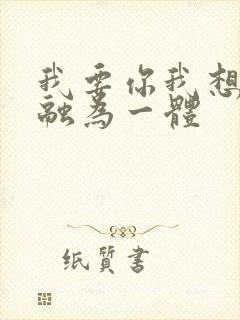 我要你我想
融為一體
纸質書